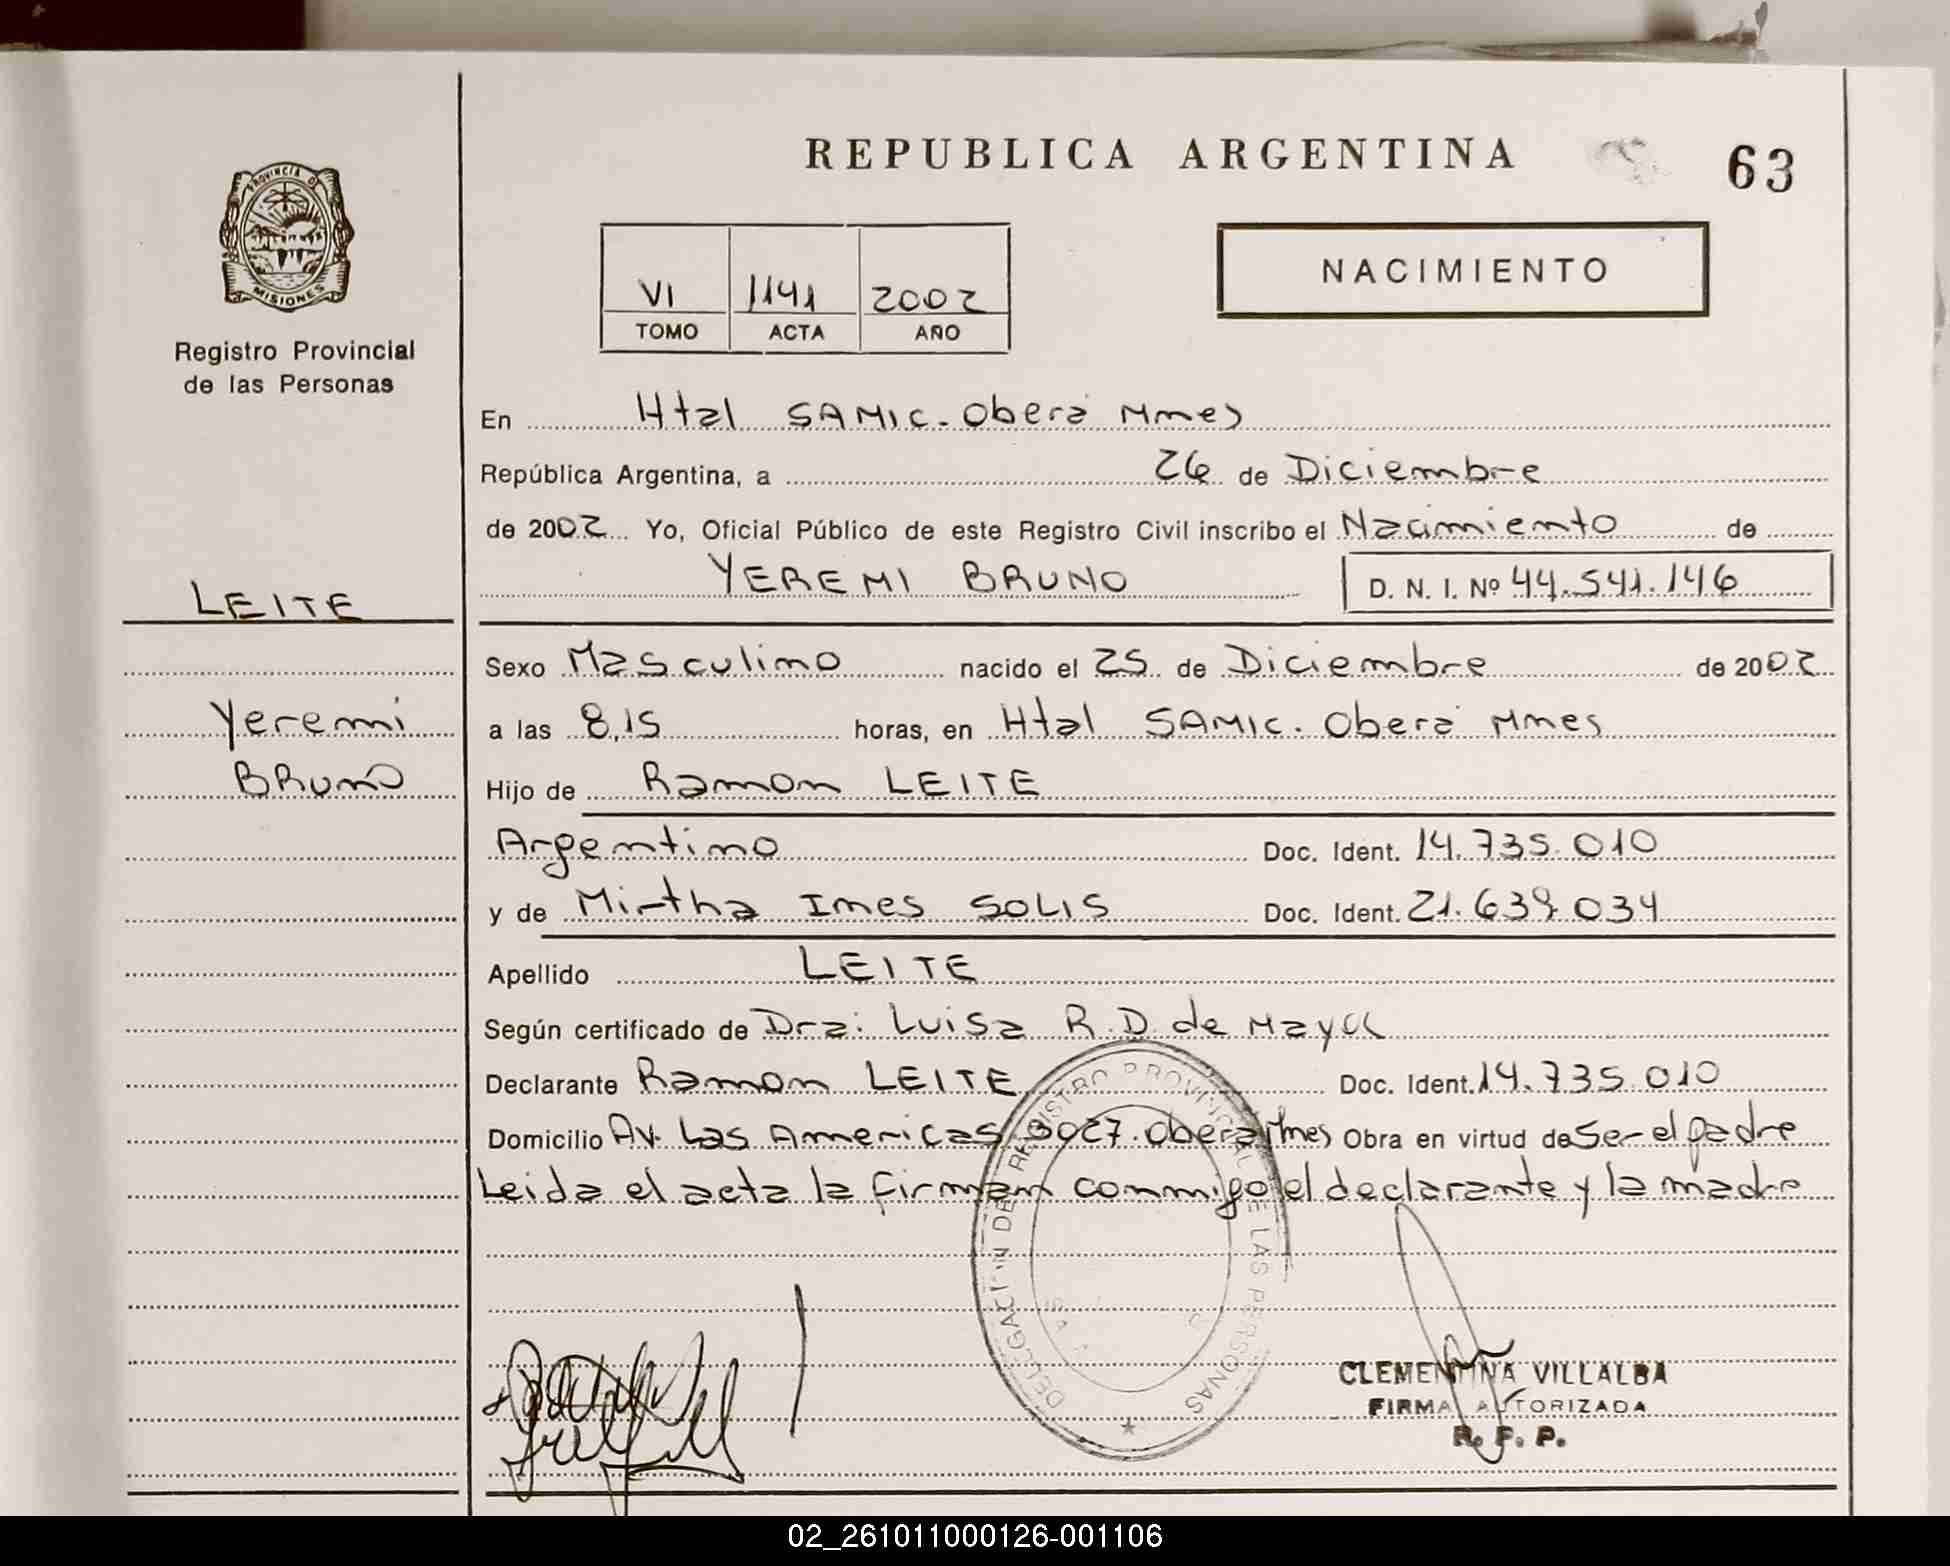 REPUBLICA ARGENTINA
63
PROVINCIA DE
MISIONES
Registro Provincial
de las Personas
VI 1141 2002
TOMO ACTA AÑO
NACIMIENTO
En Htal SAMIC. Oberá Mnes
República Argentina, a 26 de Diciembre
de 2002 Yo, Oficial Público de este Registro Civil inscribo el Nacimiento de
YEREMI BRUNO D. N. I. Nº 44.541.146
LEITE
Yeremi
Bruno
Sexo Masculino nacido el 25 de Diciembre de 2002
a las 8,15 horas, en Htal SAMIC. Oberá Mnes
Hijo de Ramon LEITE
Argentino Doc. Ident. 14.735.010
y de Mirtha Ines SOLIS Doc. Ident. 21.639.034
Apellido LEITE
Según certificado de Dra: Luisa R. D. de Maya
Declarante Ramon LEITE Doc. Ident. 14.735.010
Domicilio Av. Las Americas 3027. Oberá Mnes Obra en virtud de Ser el padre
Leida el acta la firman conmigo el declarante y la madre
DELEGACION DEL REGISTRO PROVINCIAL DE LAS PERSONAS
CLEMENTINA VILLALBA
FIRMA AUTORIZADA
R. P. P.
02_261011000126-001106